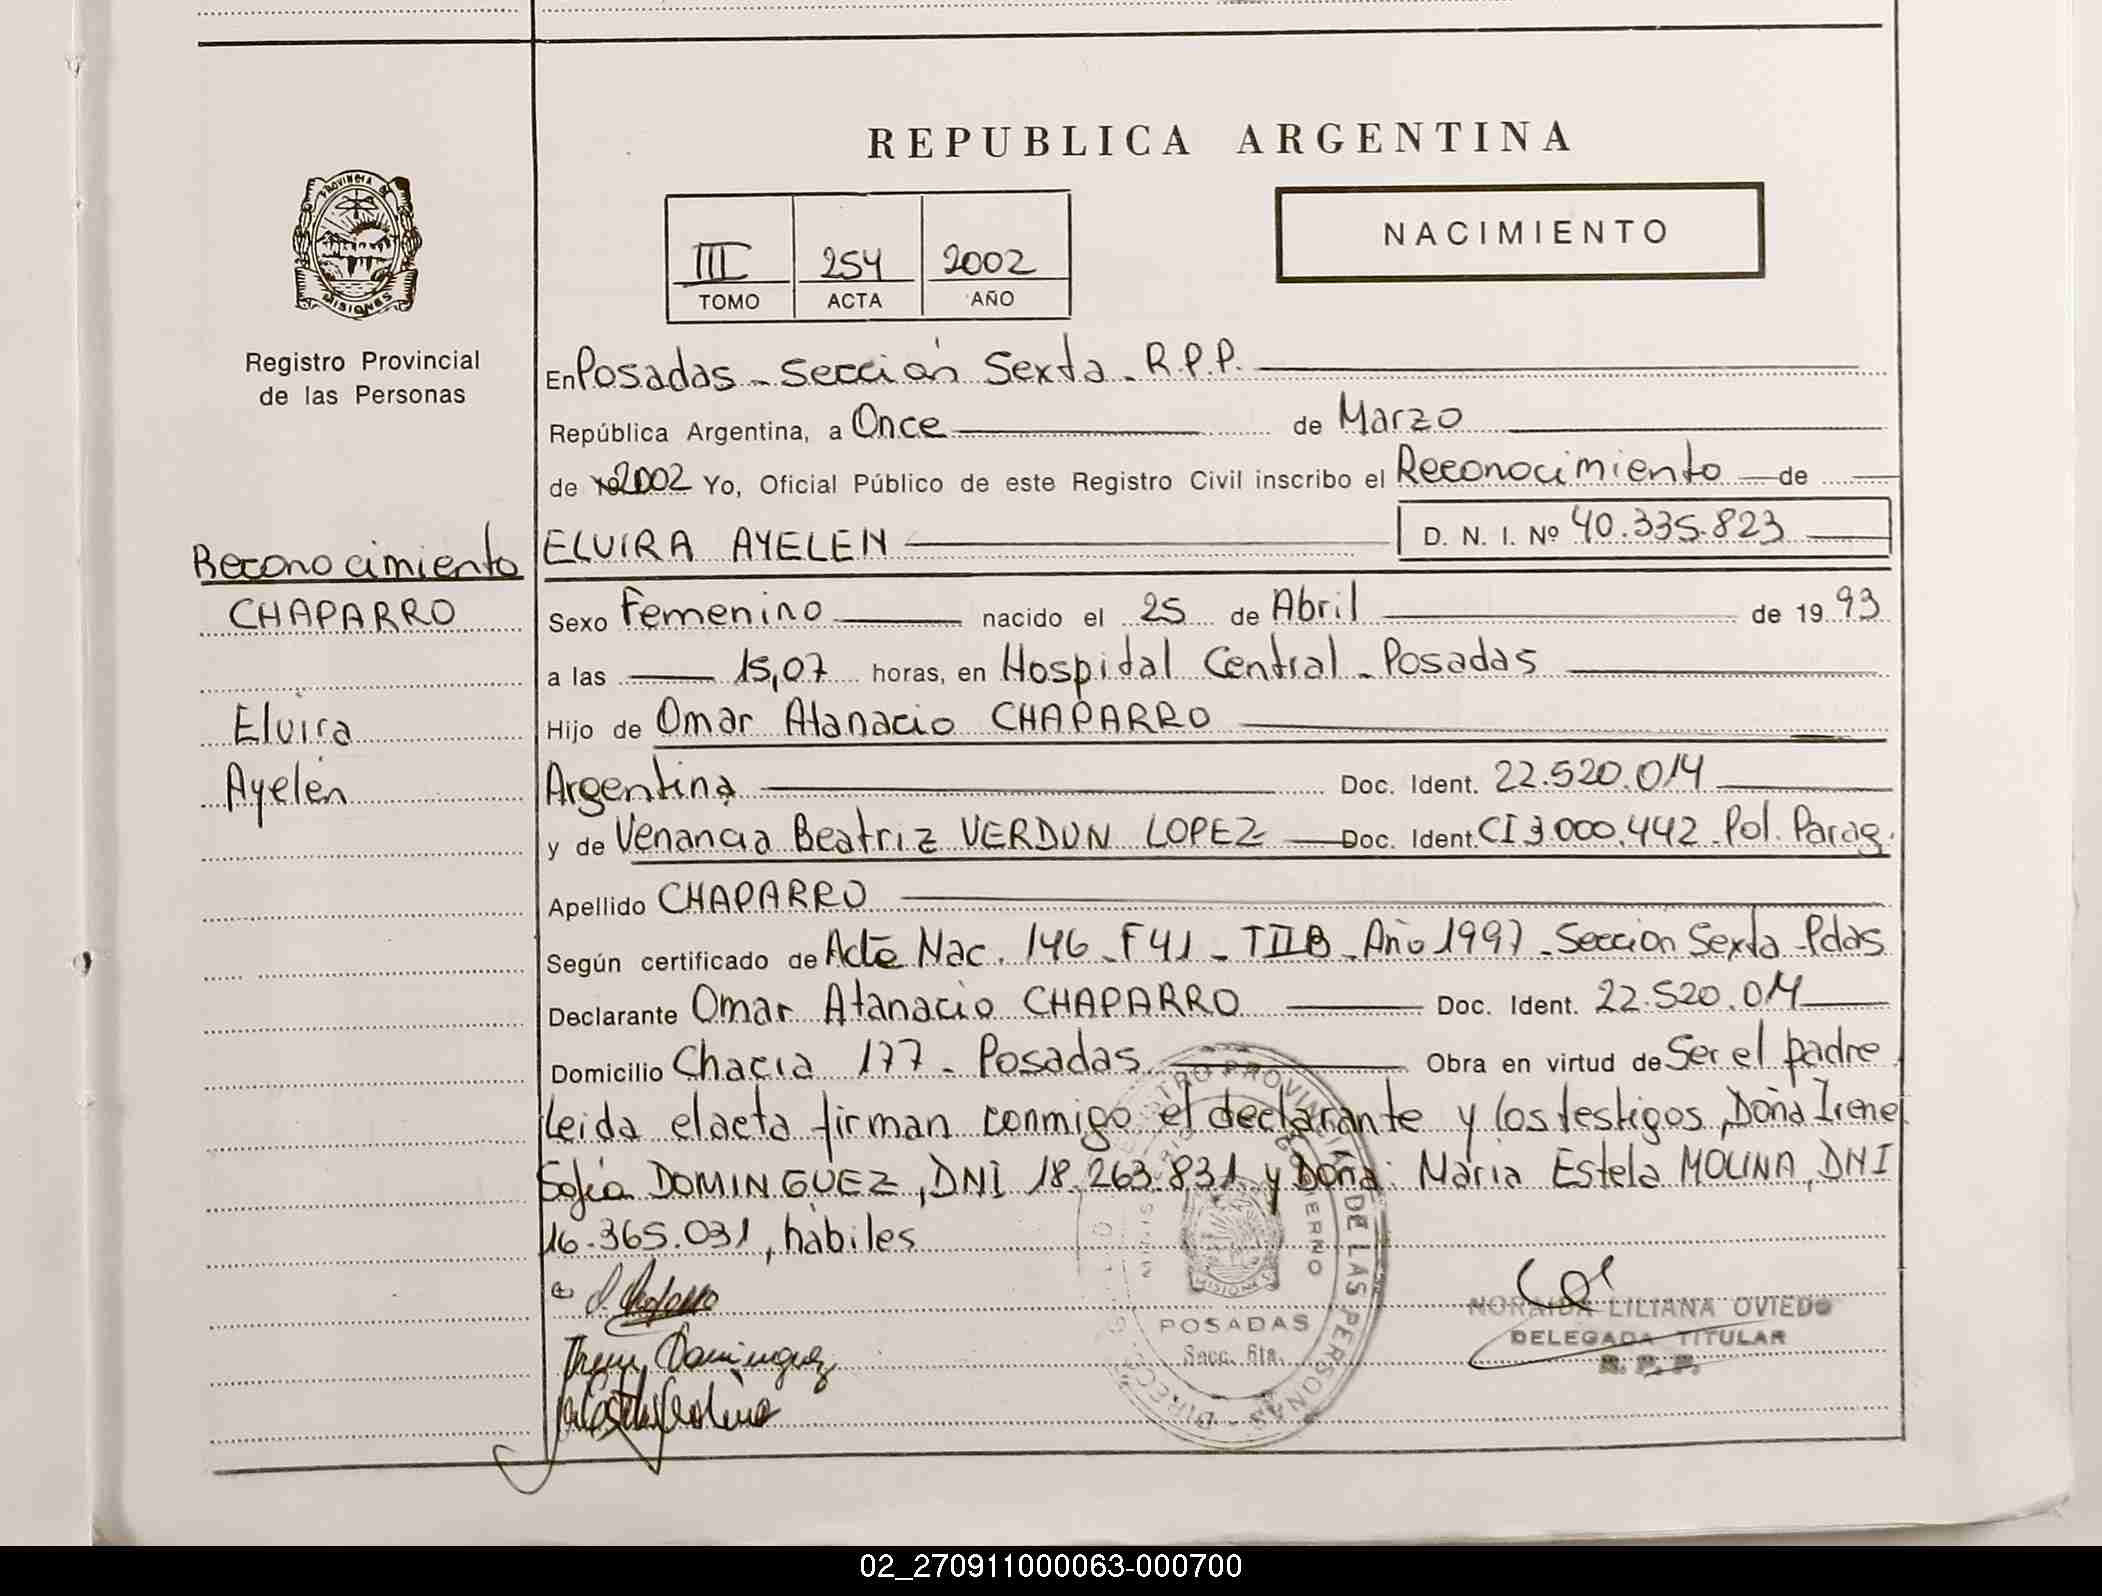 REPUBLICA ARGENTINA
PROVINCIA DE
MISIONES
Registro Provincial
de las Personas
NACIMIENTO
III 254 2002
TOMO ACTA AÑO
En Posadas - Sección Sexta - R.P.P.
República Argentina, a Once de Marzo
de 2002 Yo, Oficial Público de este Registro Civil inscribo el Reconocimiento de
ELVIRA AYELEN D. N. I. Nº 40.335.823
Reconocimiento
CHAPARRO
Elvira
Ayelén
Sexo Femenino nacido el 25 de Abril de 1993
a las 15,07 horas, en Hospital Central - Posadas
Hijo de Omar Atanacio CHAPARRO
Argentina Doc. Ident. 22.520.014
y de Venancia Beatriz VERDUN LOPEZ Doc. Ident. CI 3.000.442 Pol. Parag.
Apellido CHAPARRO
Según certificado de Acta Nac. 146 - F 41 - T II B - Año 1997 - Sección Sexta - Pdas
Declarante Omar Atanacio CHAPARRO Doc. Ident. 22.520.014
Domicilio Chacra 177 - Posadas Obra en virtud de Ser el padre
Leida el acta firman conmigo el declarante y los testigos, Doña Irene
Sofia DOMINGUEZ, DNI 18.263.831 y Doña: Maria Estela MOLINA, DNI
16.365.031, hábiles
Irene Dominguez
POSADAS
Secc. 6ta.
NORAIDA LILIANA OVIEDO
DELEGADA TITULAR
R. P. P.
02_270911000063-000700